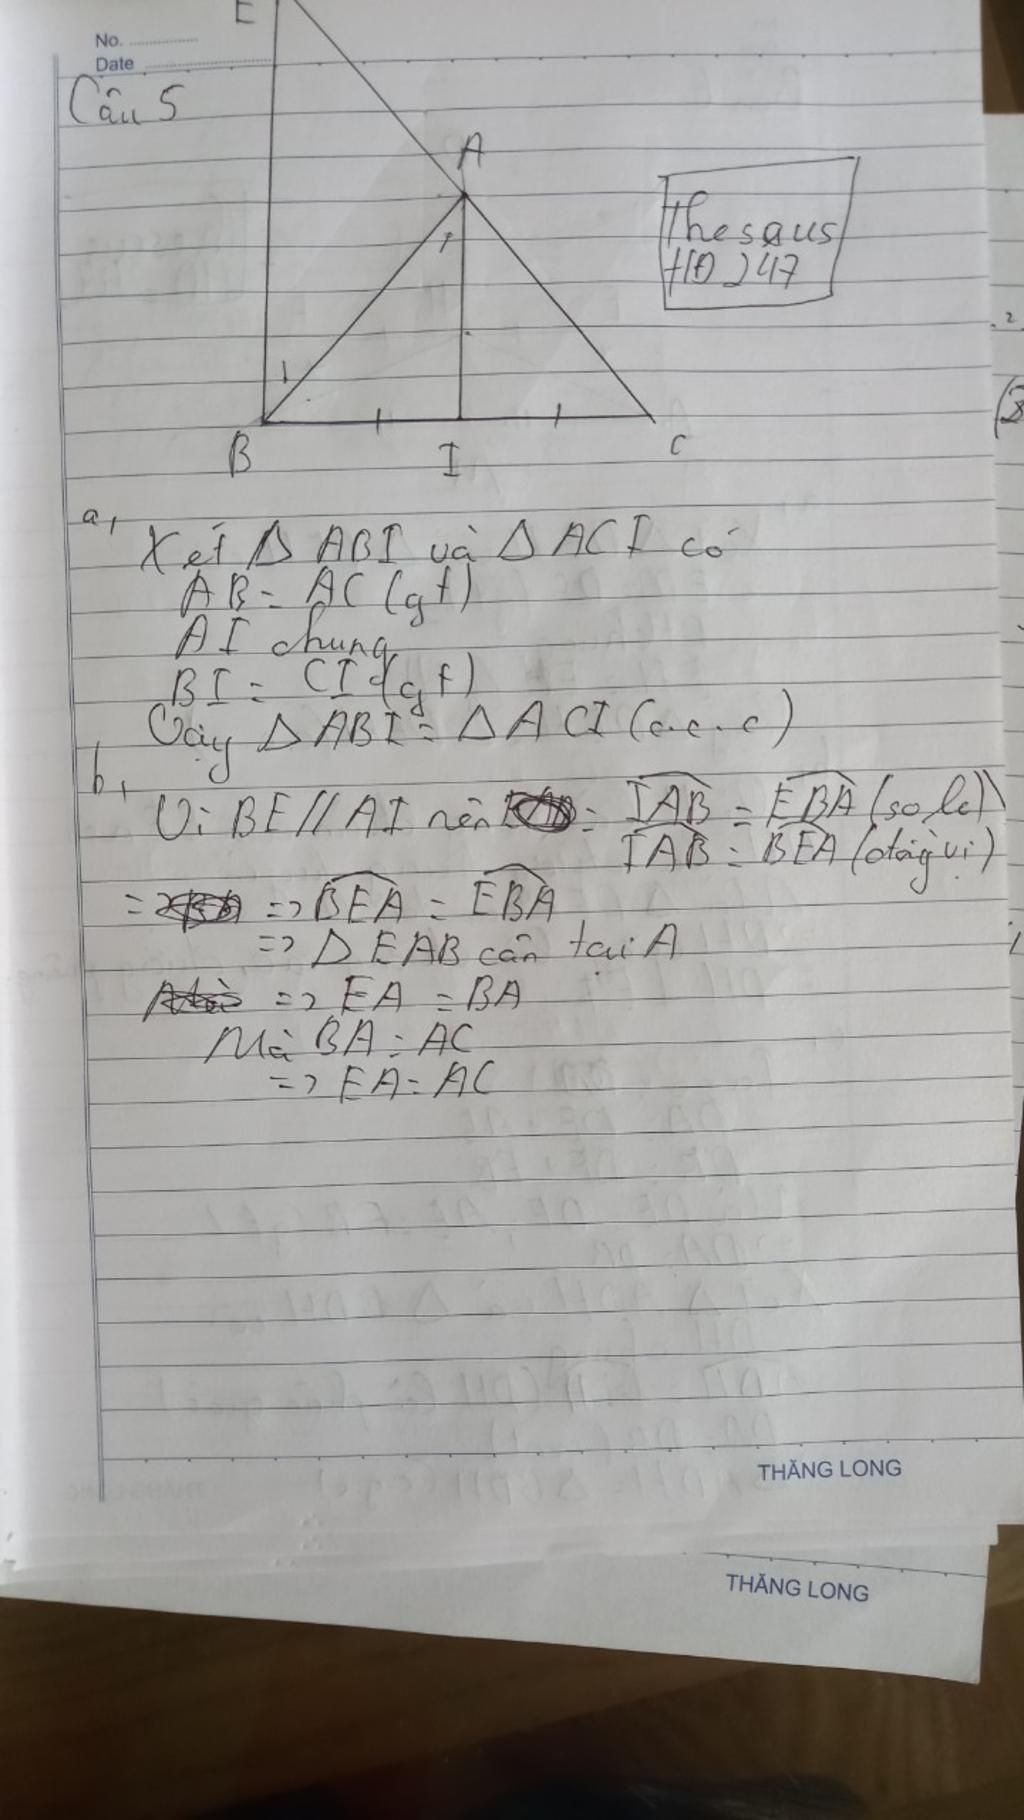 E
No.
Date
Câu 5
A
Thesaus
HĐ 247
B
I
C
a,
Xét Δ ABI và Δ ACI có
AB = AC (gt)
AI chung
BI = CI (gt)
Vậy Δ ABI = Δ ACI (c.c.c)
b,
Vì BE // AI nên = IAB = EBA (so le)
IAB = BEA (đồng vị)
=> BEA = EBA
=> Δ EAB cân tại A
=> EA = BA
Mà BA = AC
=> EA = AC
THĂNG LONG
THĂNG LONG